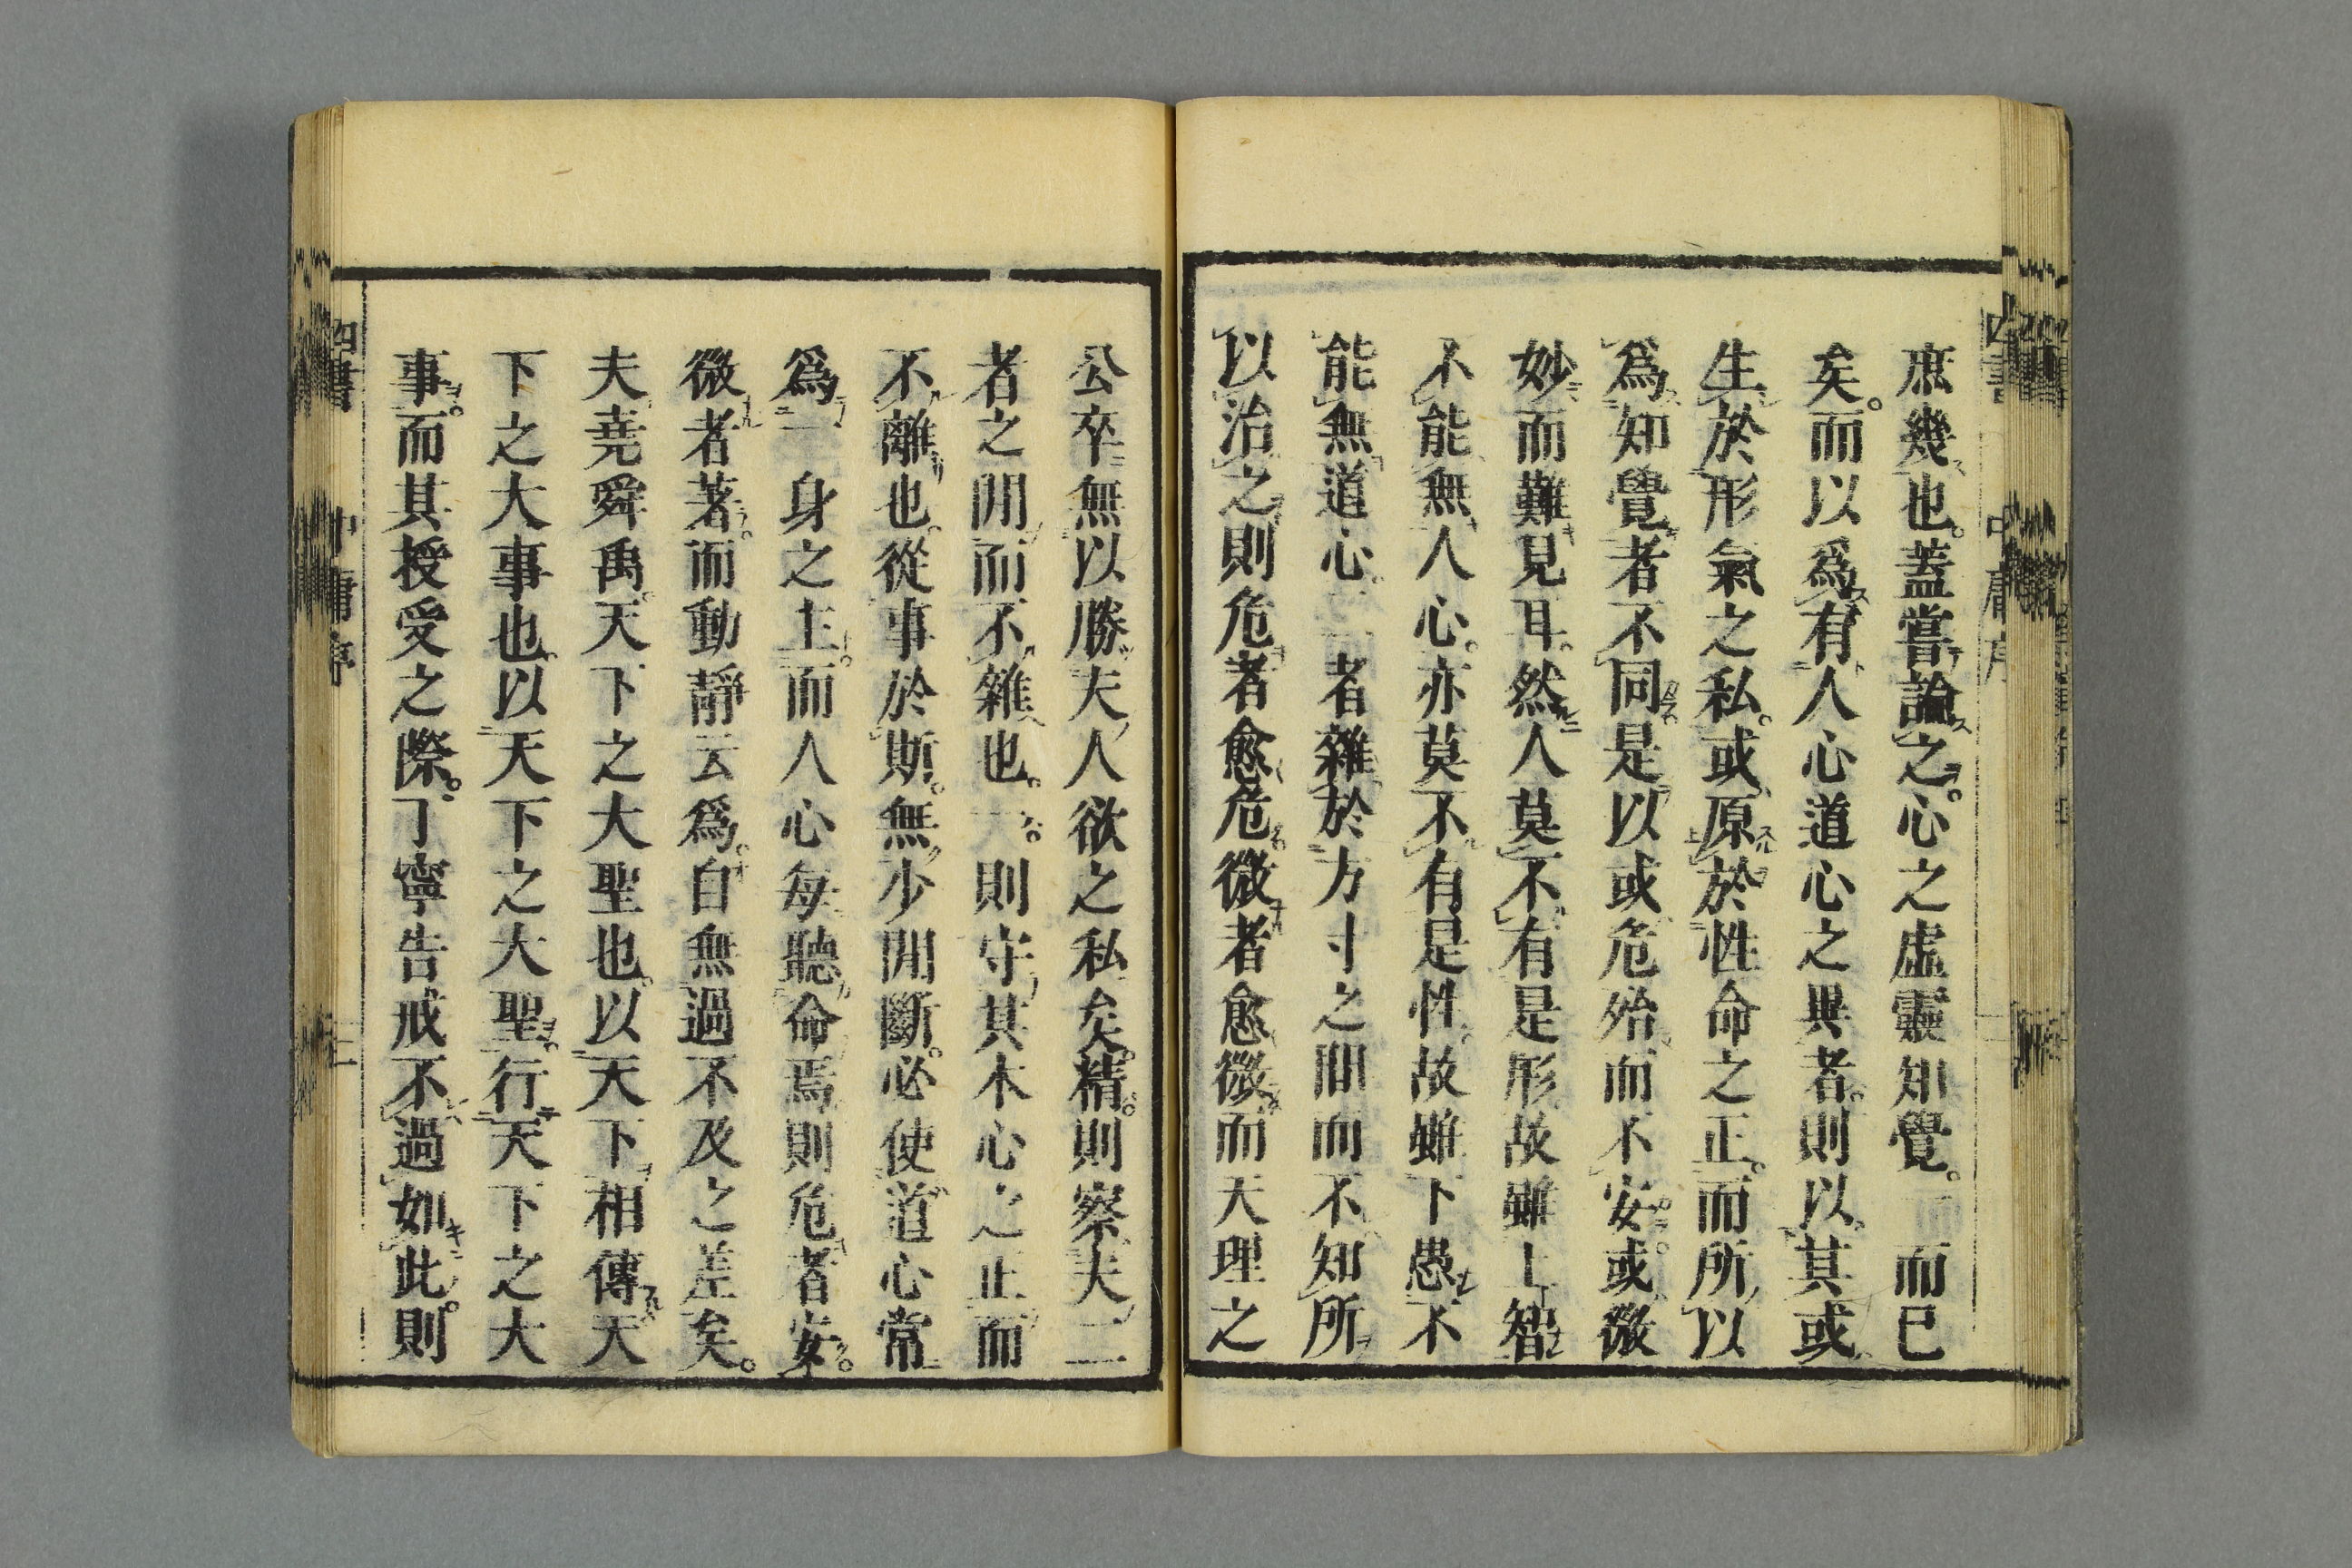 庶幾也蓋嘗論之心之虛靈知覺一而已
矣而以爲有人心道心之異者則以其或
生於形氣之私或原於性命之正而所以
爲知覺者不同是以或危殆而不安或微
妙而難見耳然人莫不有是形故雖上智
不能無人心亦莫不有是性故雖下愚不
能無道心二者雜於方寸之間而不知所
以治之則危者愈危微者愈微而天理之
公卒無以勝夫人欲之私矣精則察夫二
者之閒而不雜也一則守其本心之正而
不離也從事於斯無少閒斷必使道心常
爲一身之主而人心每聽命焉則危者安
微者著而動靜云爲自無過不及之差矣
夫堯舜禹天下之大聖也以天下相傳天
下之大事也以天下之大聖行天下之大
事而其授受之際丁寧告戒不過如此則
四書 中庸序 三